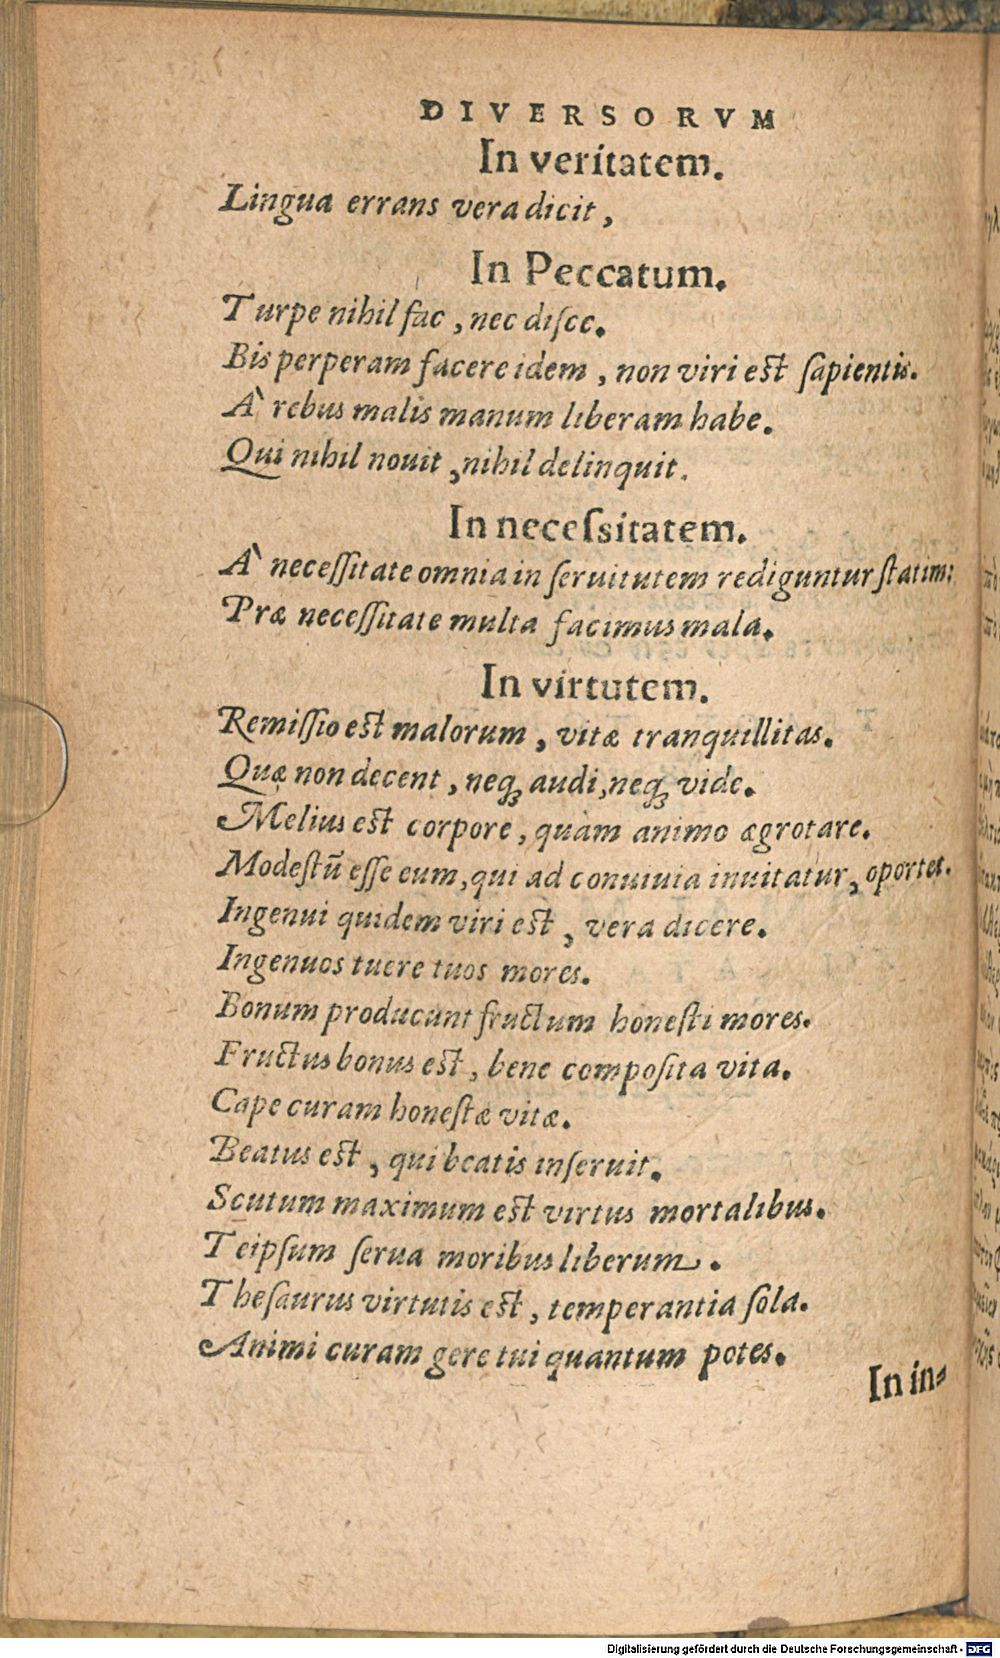 DIVERSORVM
In veritatem.
Lingua errans vera dicit,
In Peccatum.
Turpe nihil fac, nec disce.
Bis perperam facere idem, non viri est sapientis.
A' rebus malis manum liberam habe.
Qui nihil nouit, nihil delinquit.
In necessitatem.
A' necessitate omnia in seruitutem rediguntur statim:
Præ necessitate multa facimus mala.
In virtutem.
Remissio est malorum, vitæ tranquillitas.
Quæ non decent, neq; audi, neq; vide.
Melius est corpore, quàm animo ægrotare.
Modestũ esse eum, qui ad conuiuia inuitatur, oportet.
Ingenui quidem viri est, vera dicere.
Ingenuos tuere tuos mores.
Bonum producunt fructum honesti mores.
Fructus bonus est, bene composita vita.
Cape curam honestæ vitæ.
Beatus est, qui beatis inseruit.
Scutum maximum est virtus mortalibus.
Teipsum serua moribus liberum.
Thesaurus virtutis est, temperantia sola.
Animi curam gere tui quantum potes.
In in-
Digitalisierung gefördert durch die Deutsche Forschungsgemeinschaft - DFG